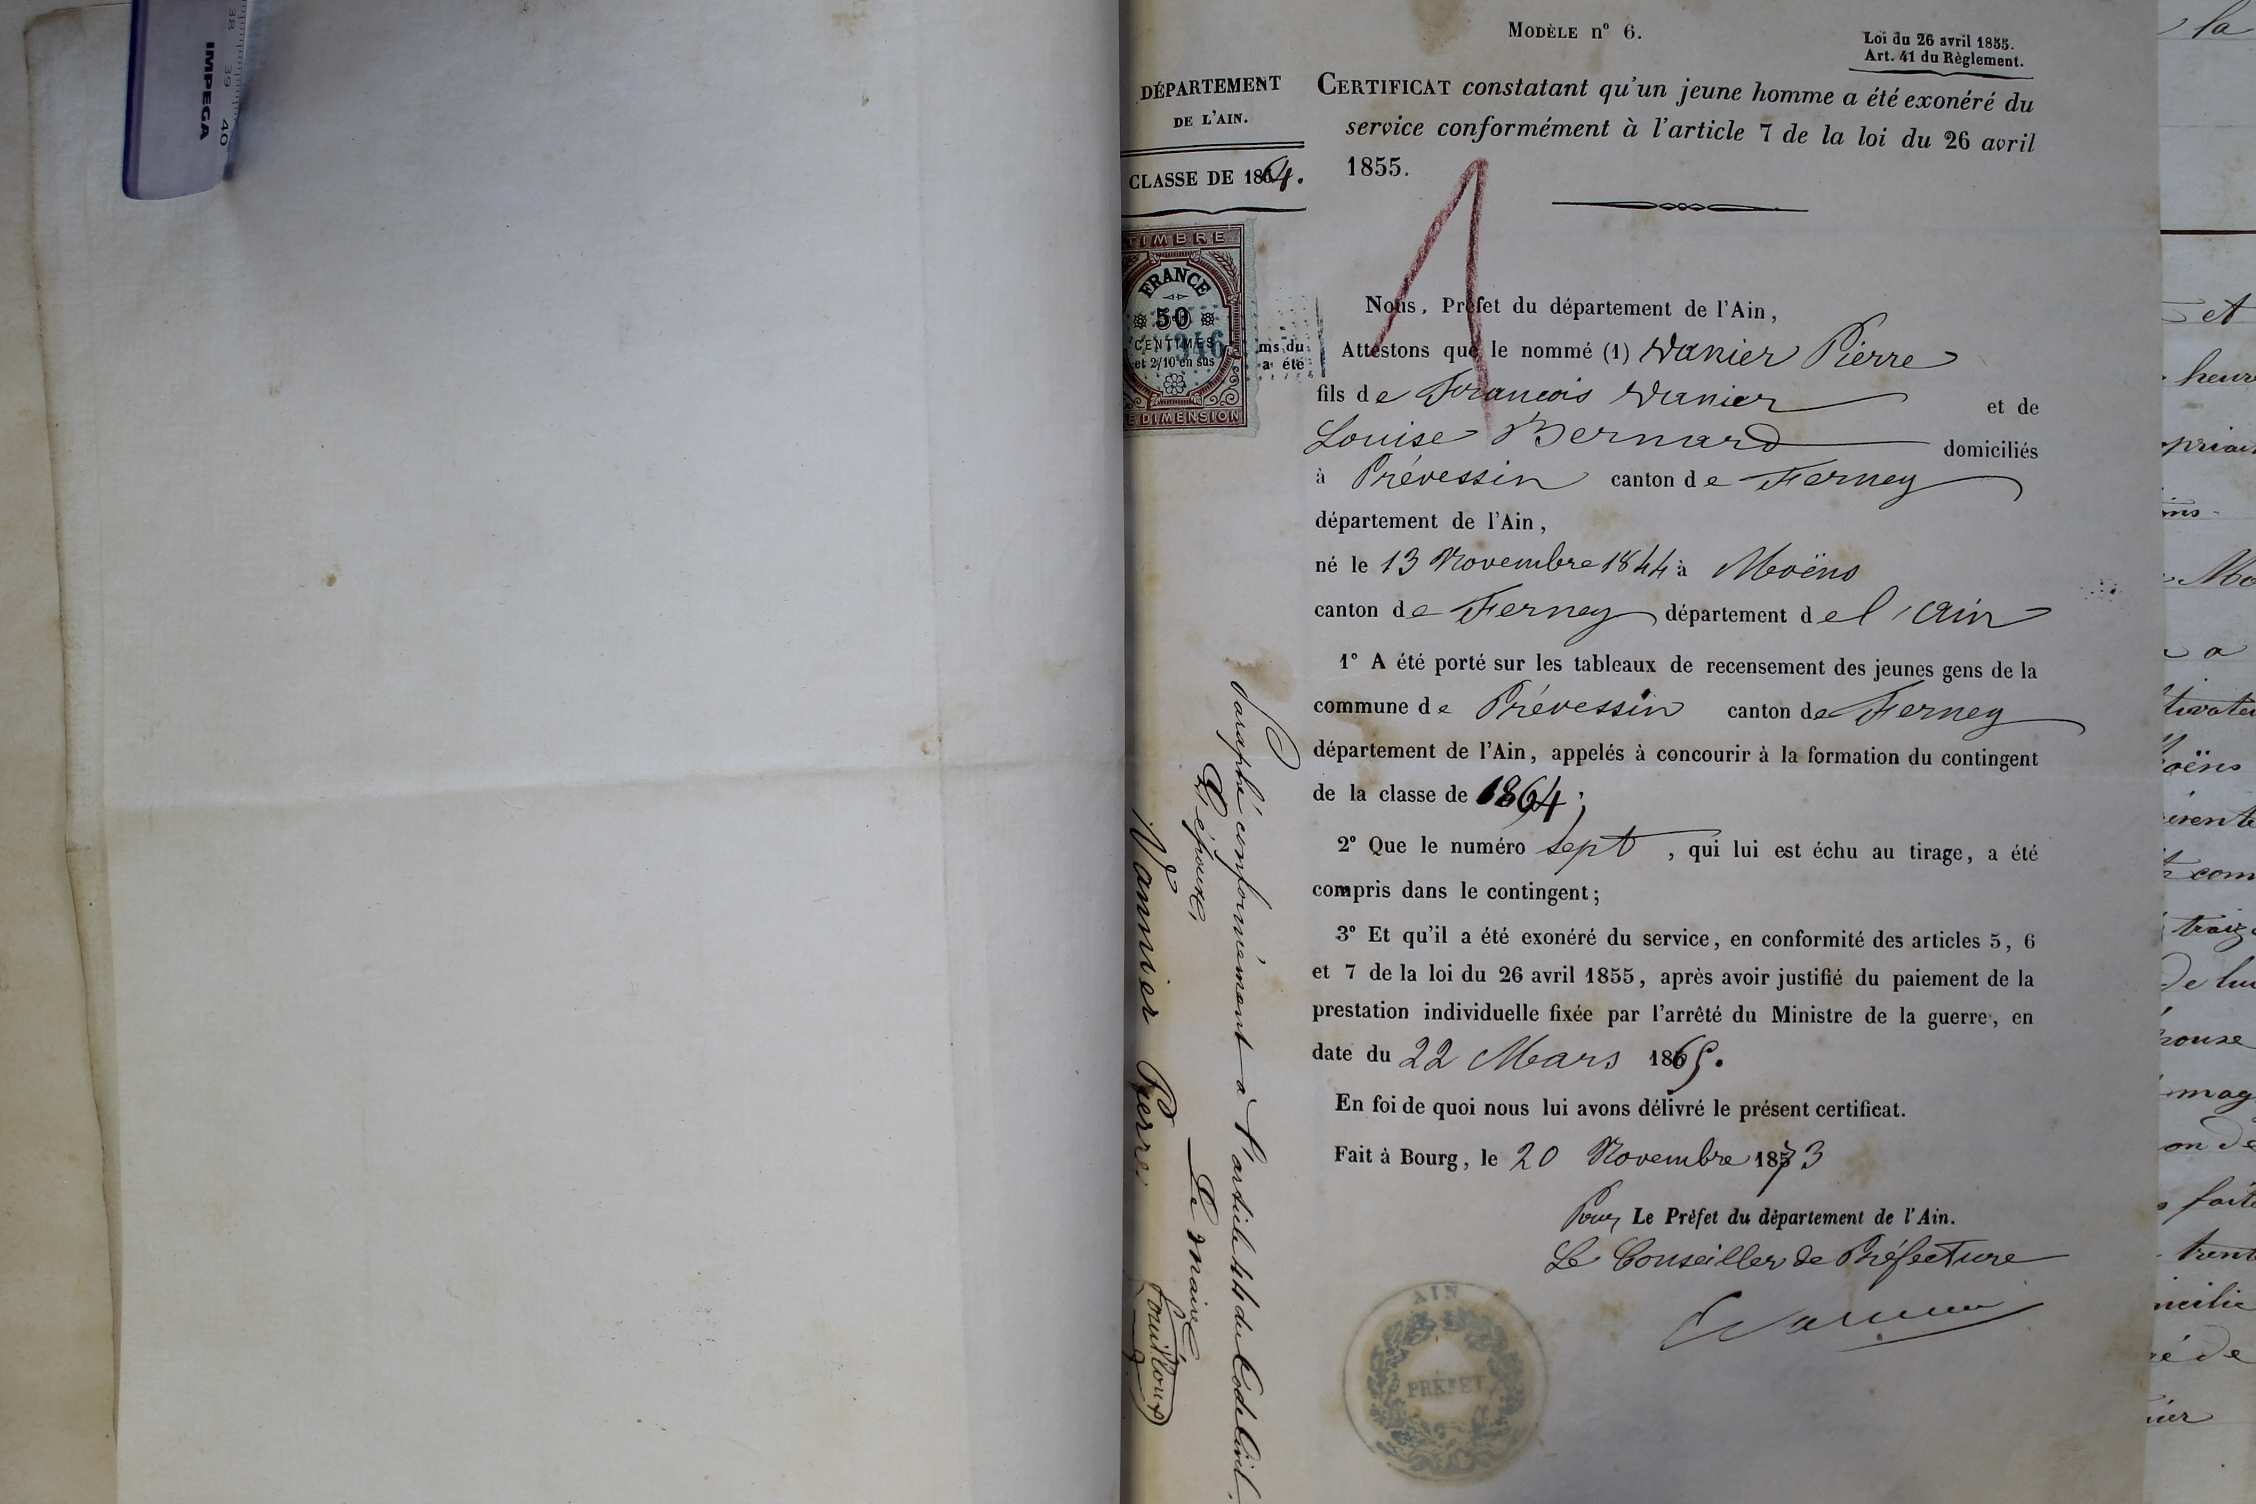 38 39 40
IMPEGA
MODÈLE nº 6.
Loi du 26 avril 1855.
Art. 41 du Règlement.
DÉPARTEMENT
DE L'AIN.
CLASSE DE 1864.
CERTIFICAT constatant qu'un jeune homme a été exonéré du
service conformément à l'article 7 de la loi du 26 avril
1855.
1
TIMBRE
FRANCE
50
CENTIMES
et 2/10 en sus
DIMENSION
ms du
a été
Nous, Préfet du département de l'Ain,
Attestons que le nommé (1) Vanier Pierre
fils de François Vanier et de
Louise Bernard domiciliés
à Prévessin canton de Ferney
département de l'Ain,
né le 13 Novembre 1844 à Moëns
canton de Ferney département de l'ain
1º A été porté sur les tableaux de recensement des jeunes gens de la
commune de Prévessin canton de Ferney
département de l'Ain, appelés à concourir à la formation du contingent
de la classe de 1864;
2º Que le numéro sept, qui lui est échu au tirage, a été
compris dans le contingent;
3º Et qu'il a été exonéré du service, en conformité des articles 5, 6
et 7 de la loi du 26 avril 1855, après avoir justifié du paiement de la
prestation individuelle fixée par l'arrêté du Ministre de la guerre, en
date du 22 Mars 1865.
En foi de quoi nous lui avons délivré le présent certificat.
Fait à Bourg, le 20 Novembre 1873
Pour Le Préfet du département de l'Ain.
Le Conseiller de Préfecture
AIN
PRÉFET
Paraphé conformément à l'article 44 du Code Civil.
L'époux, Le maire
Vannier Pierre